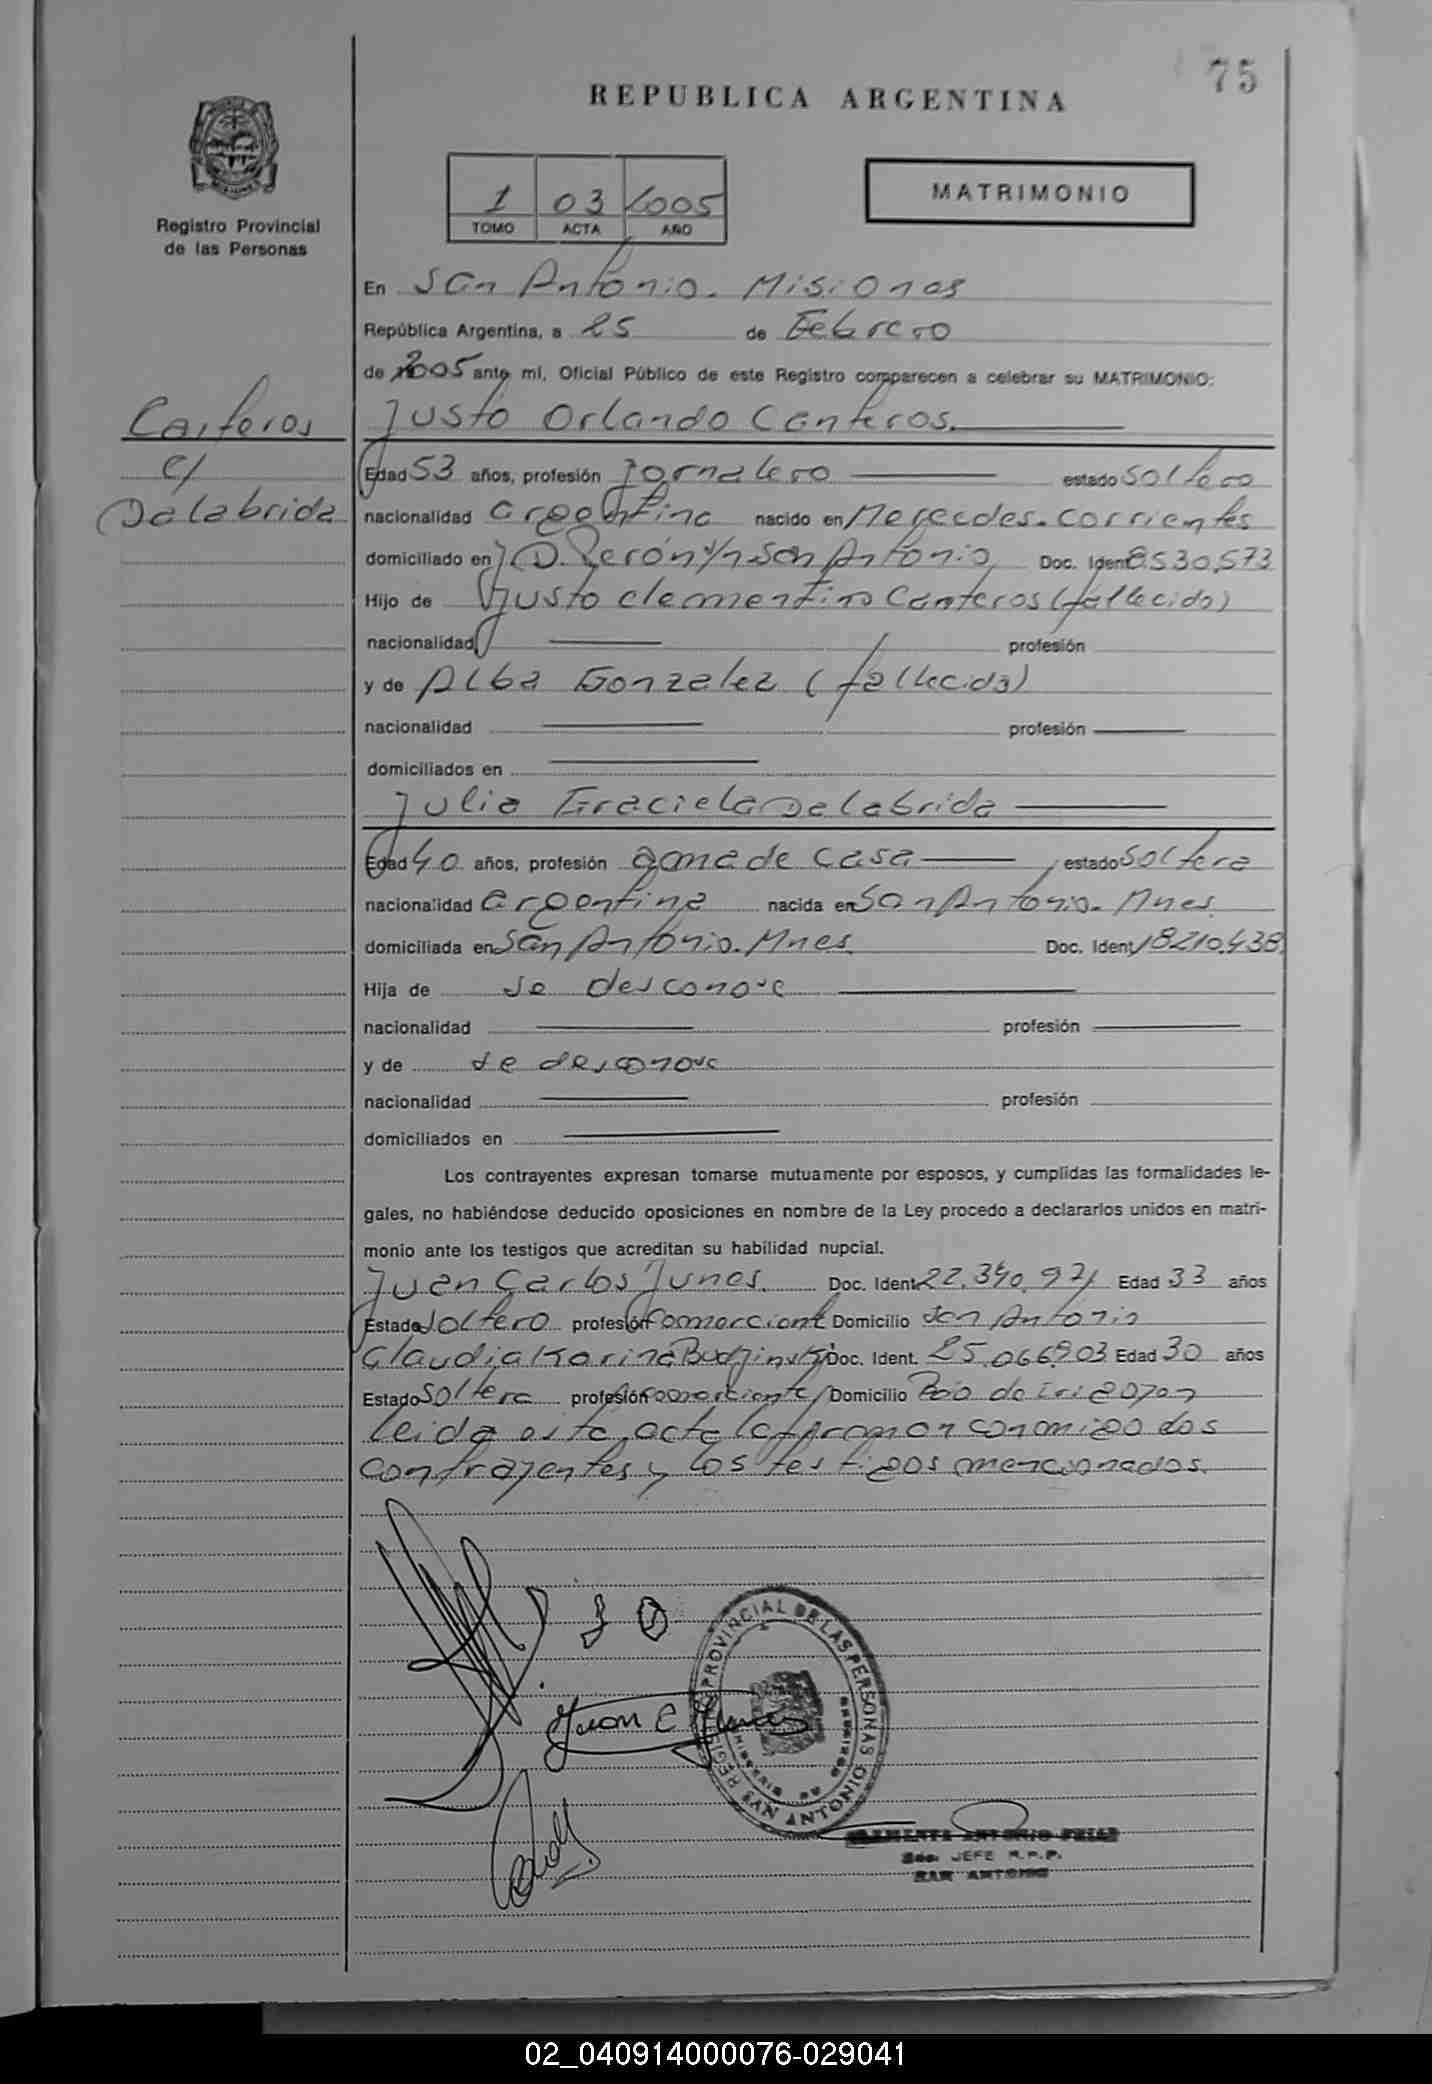 75
REPUBLICA ARGENTINA
Registro Provincial
de las Personas
1 03 2005
TOMO ACTA AÑO
MATRIMONIO
En San Antonio. Misiones
República Argentina, a 25 de Febrero
de 2005 ante mí, Oficial Público de este Registro comparecen a celebrar su MATRIMONIO:
Canteros
c/
Dalabrida
Justo Orlando Canteros.
Edad 53 años, profesión Jornalero estado Soltero
nacionalidad argentina nacido en Mercedes. Corrientes
domiciliado en J.D. Perón s/n San Antonio Doc. Ident 8.530.573
Hijo de Justo Clementino Canteros (fallecido)
nacionalidad profesión
y de Alba Gonzalez (fallecida)
nacionalidad profesión
domiciliados en
Julia Graciela Dalabrida
Edad 40 años, profesión ama de casa estado Soltera
nacionalidad argentina nacida en San Antonio. Mnes.
domiciliada en San Antonio. Mnes. Doc. Ident 18210.438.
Hija de se desconoce
nacionalidad profesión
y de se desconoce
nacionalidad profesión
domiciliados en
Los contrayentes expresan tomarse mutuamente por esposos, y cumplidas las formalidades le-
gales, no habiéndose deducido oposiciones en nombre de la Ley procedo a declararlos unidos en matri-
monio ante los testigos que acreditan su habilidad nupcial.
Juan Carlos Junes. Doc. Ident. 22.340.971 Edad 33 años
Estado Soltero profesión Comerciante Domicilio San Antonio
Claudia Karina Doc. Ident. 25.066.903 Edad 30 años
Estado Soltera profesión comerciante Domicilio de Irigoyen
leida esta acta la firman conmigo los
contrayentes y los testigos mencionados.
J O
Juan C Junes
REGISTRO PROVINCIAL DE LAS PERSONAS
SAN ANTONIO
ANTONIO
JEFE R.P.P.
SAN ANTONIO
02_040914000076-029041